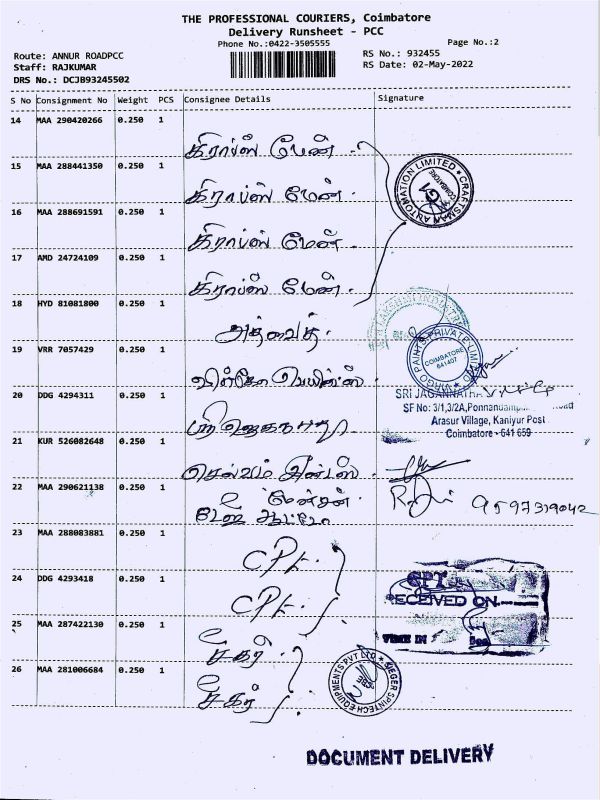 THE PROFESSIONAL COURIERS, Coimbatore
Delivery Runsheet - PCC
Phone No.:0422-3505555
Page No.:2
Route: ANNUR ROADPCC
Staff: RAJKUMAR
DRS No.: DCJB93245502
RS No.: 932455
RS Date: 02-May-2022
S No Consignment No Weight PCS Consignee Details Signature
14 MAA 290420266 0.250 1
கிராப்ஸ் மேன்
15 MAA 288441350 0.250 1
கிராப்ஸ் மேன்
CRAFTSMAN AUTOMATION LIMITED
COIMBATORE
16 MAA 288691591 0.250 1
கிராப்ஸ் மேன்
17 AMD 24724109 0.250 1
கிராப்ஸ் மேன்
18 HYD 81081800 0.250 1
அத்வைத்
19 VRR 7057429 0.250 1
விர்கோ பெயிண்ட்ஸ்
VIRGO PAINTS PRIVATE LIMITED
COIMBATORE
641407
20 DDG 4294311 0.250 1
ஸ்ரீ ஜெகநாதா
SRI JAGANNATHA
SF No: 3/1,3/2A,
Arasur Village, Kaniyur Post
Coimbatore - 641 659
21 KUR 526082648 0.250 1
செல்வம் அன்டஸ்
22 MAA 290621138 0.250 1
9597319042
23 MAA 288083881 0.250 1
CPT
24 DDG 4293418 0.250 1
CPT
CPT
RECEIVED ON
TIME IN
25 MAA 287422130 0.250 1
சீகர்
26 MAA 281006684 0.250 1
சீகர்
SIEGER SPINTECH EQUIPMENTS PVT LTD
DOCUMENT DELIVERY